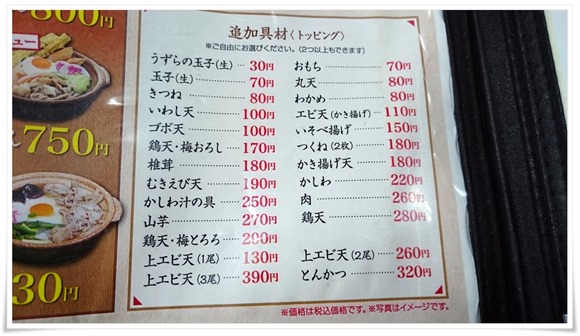 800円
ニュー
750円
30円
追加具材〈トッピング〉
※ご自由にお選びください。(2つ以上もできます)
うずらの玉子(生) … 30円
玉子(生) … 70円
きつね … 80円
いわし天 … 100円
ゴボ天 … 100円
鶏天・梅おろし … 170円
椎茸 … 180円
むきえび天 … 190円
かしわ汁の具 … 250円
山芋 … 270円
鶏天・梅とろろ … 290円
上エビ天(1尾) … 130円
上エビ天(3尾) … 390円
おもち … 70円
丸天 … 80円
わかめ … 80円
エビ天(かき揚げ) … 110円
いそべ揚げ … 150円
つくね(2枚) … 180円
かき揚げ天 … 180円
かしわ … 220円
肉 … 260円
鶏天 … 280円
上エビ天(2尾) … 260円
とんかつ … 320円
※価格は税込価格です。※写真はイメージです。